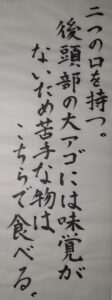 二つの口を持つ。
後頭部の大アゴには味覚が
ないため苦手な物は
こちらで食べる。